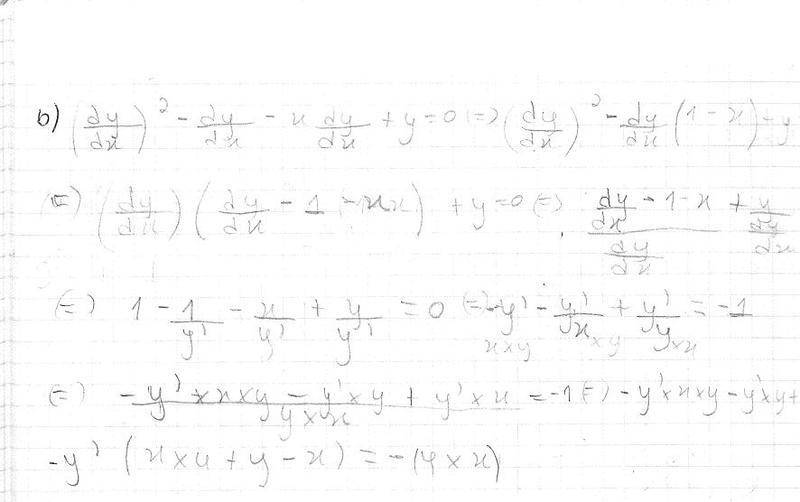 b) (dy/dx)² - dy/dx - x dy/dx + y = 0 (=) (dy/dx)² - dy/dx (1 - x) + y
(=) (dy/dx) (dy/dx - 1 - x) + y = 0 (=) (dy/dx - 1 - x)/(dy/dx) + y/(dy/dx)
(=) 1 - 1/y' - x/y' + y/y' = 0 (=) -y' - y'/x + y'/y = -1
x×y ×y ×x
(=) (-y' × x×y - y'×y + y'×x)/(y×x) = -1 (=) - y'×x×y - y'×y +
-y' (x×y + y - x) = -(y×x)